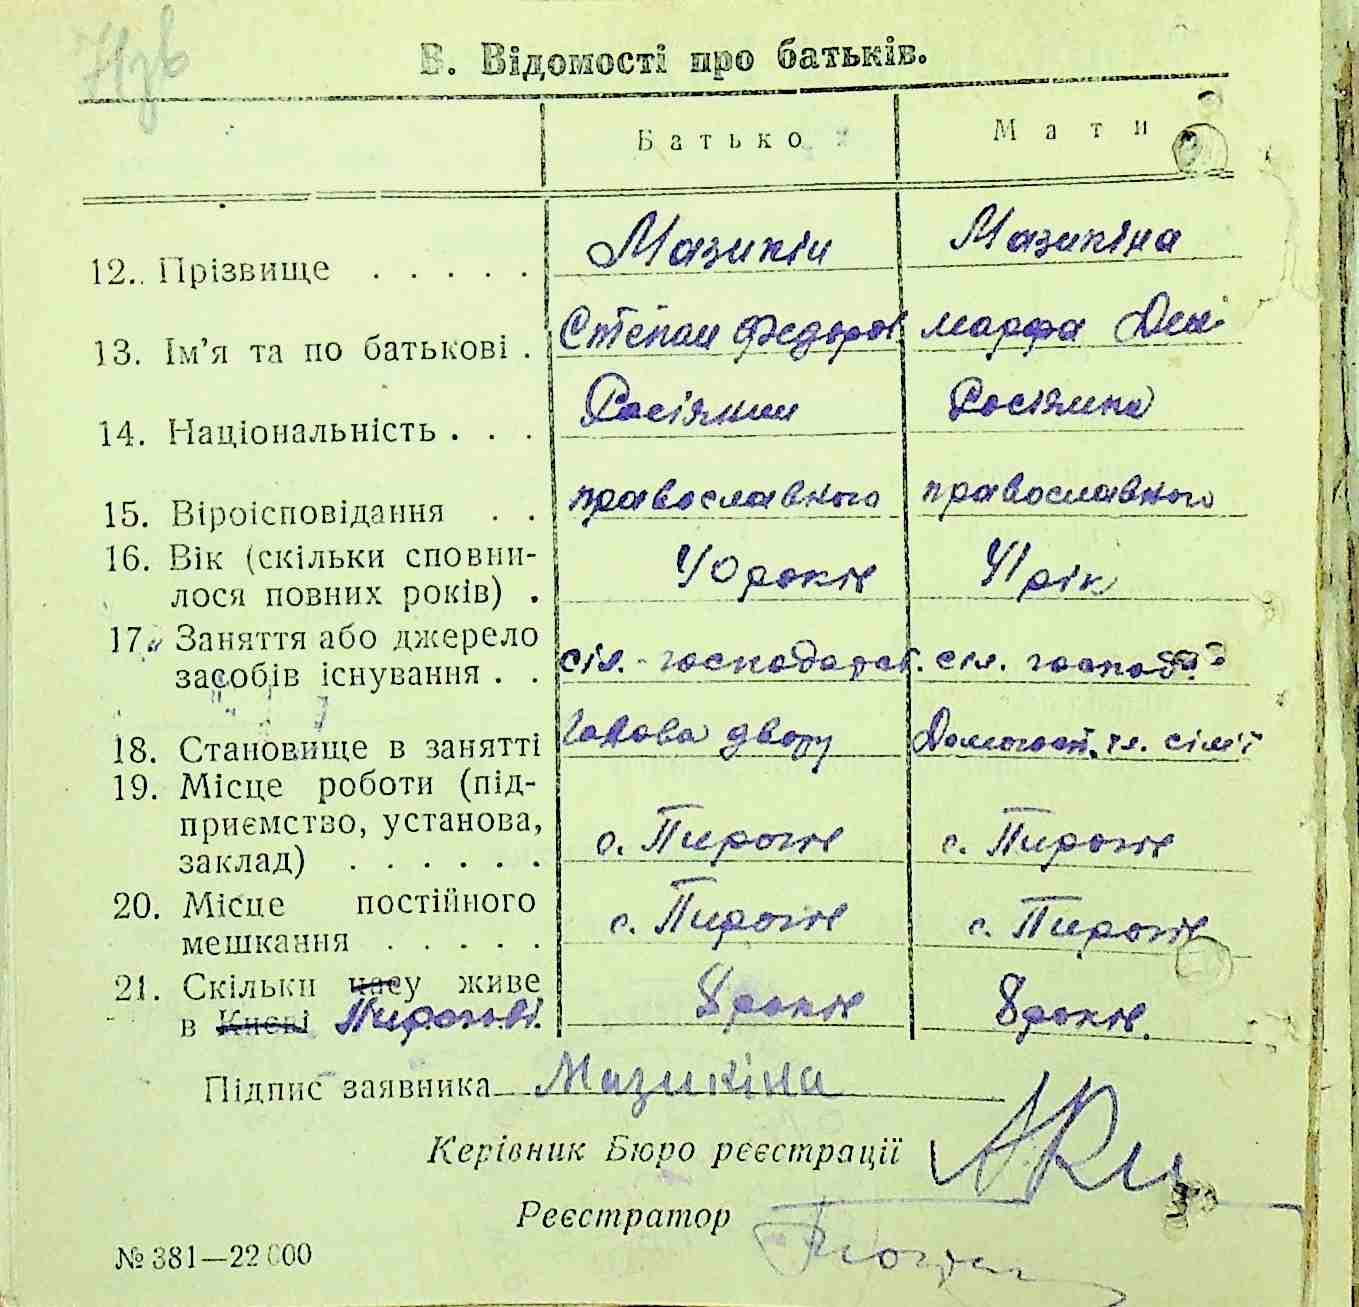 В. Відомості про батьків.
Батько Мати
12. Прізвище . . . . . Мазикін Мазикіна
13. Ім'я та по батькові . Степан Федоров. Марфа
14. Національність . . . Росіянин Росіянка
15. Віроісповідання . . православного православного
16. Вік (скільки сповни-
лося повних років) . 40 років 41 рік
17. Заняття або джерело
засобів існування . . сіл. господарст. сіл. господ.
18. Становище в занятті Голова двору Домогосп. чл. сім'ї
19. Місце роботи (під-
приємство, установа,
заклад) . . . . . . с. Пирогів с. Пирогів
20. Місце постійного
мешкання . . . . . с. Пирогів с. Пирогів
21. Скільки часу живе
в Києві Пирогові. 8 років 8 років.
Підпис заявника Мазикіна
Керівник Бюро реєстрації
Реєстратор
№ 381—22000